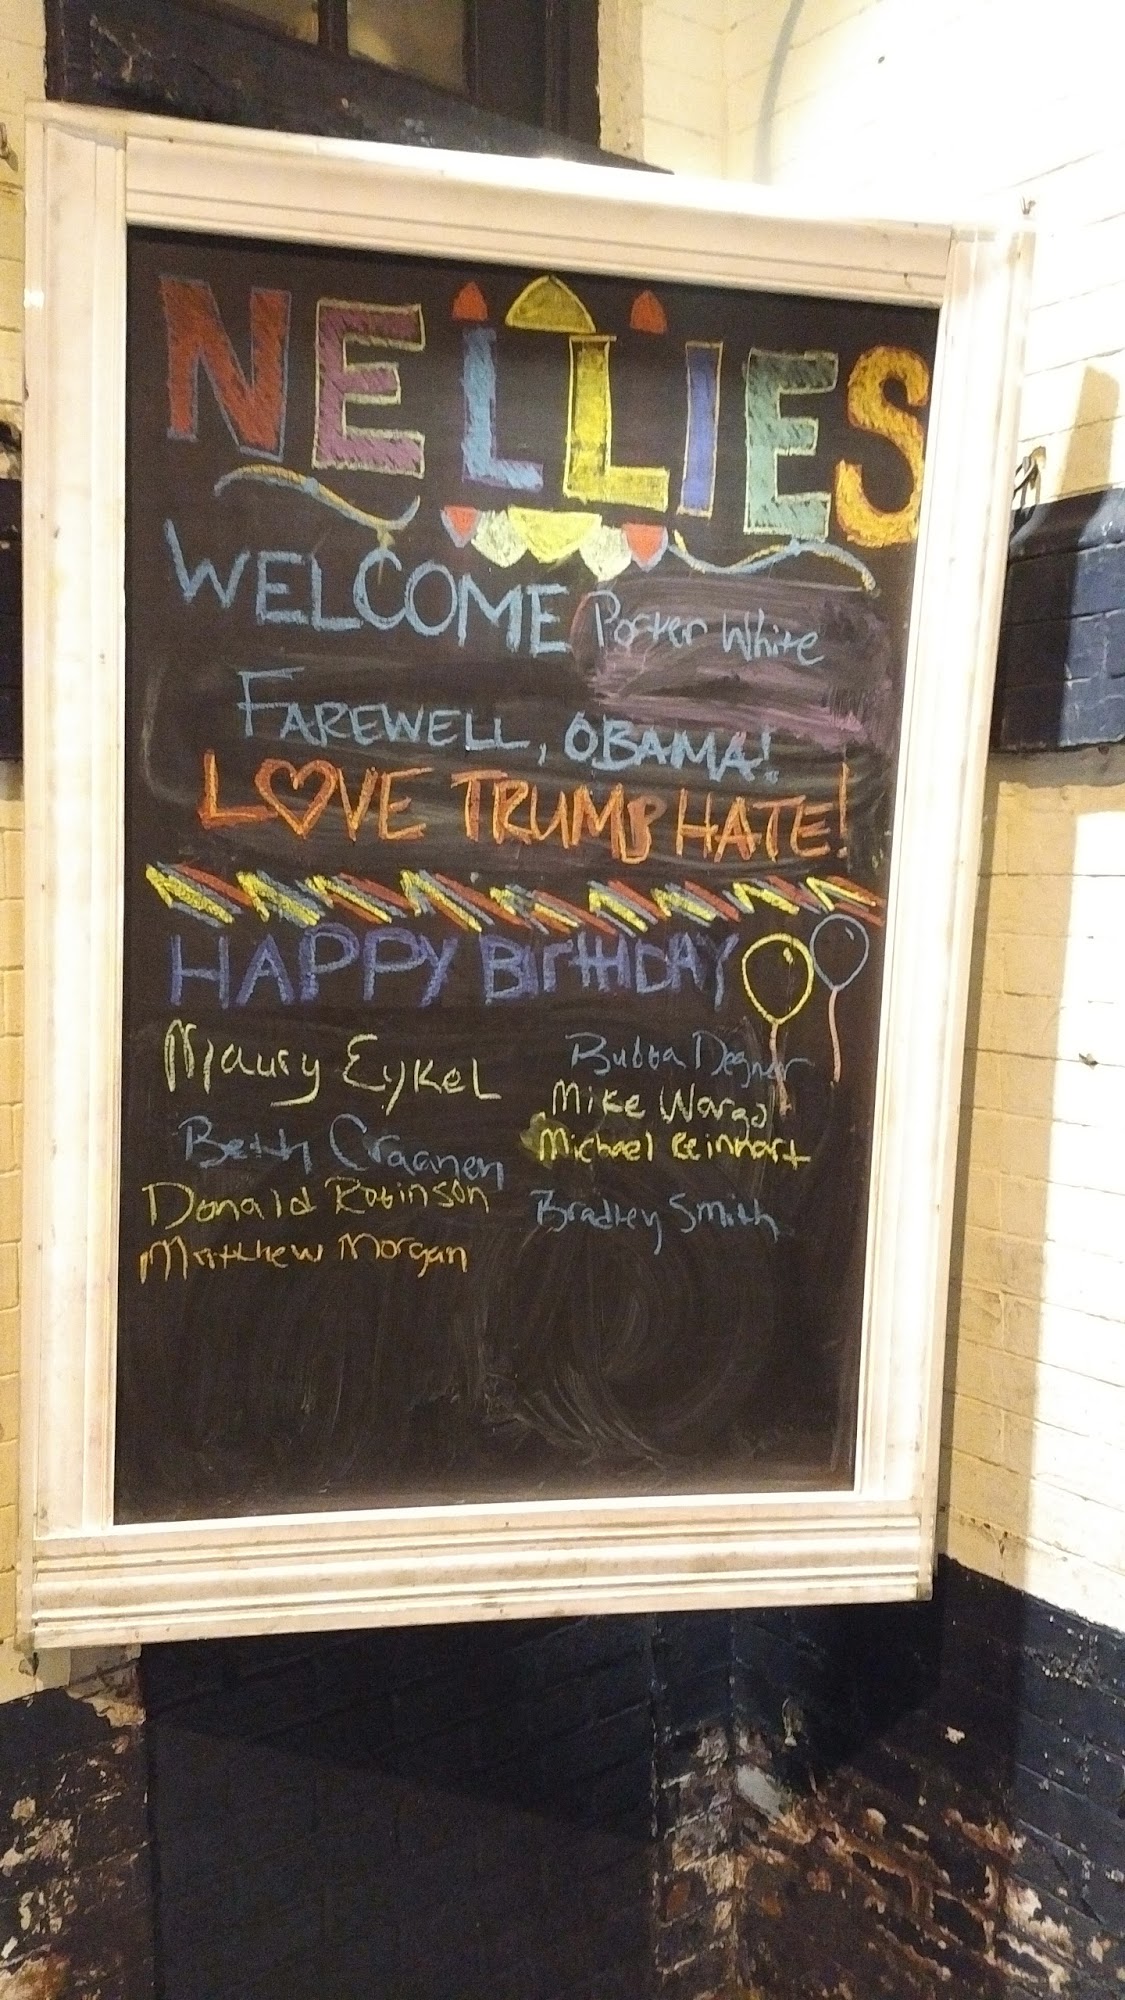 NELLIES
WELCOME Porter White
FAREWELL, OBAMA!
L♡VE TRUMP HATE!
HAPPY BIRTHDAY
Maury Eykel
Beth Craanen
Donald Robinson
Matthew Morgan
Bubba Degner
Mike Wargo
Michael Reinhart
Bradley Smith